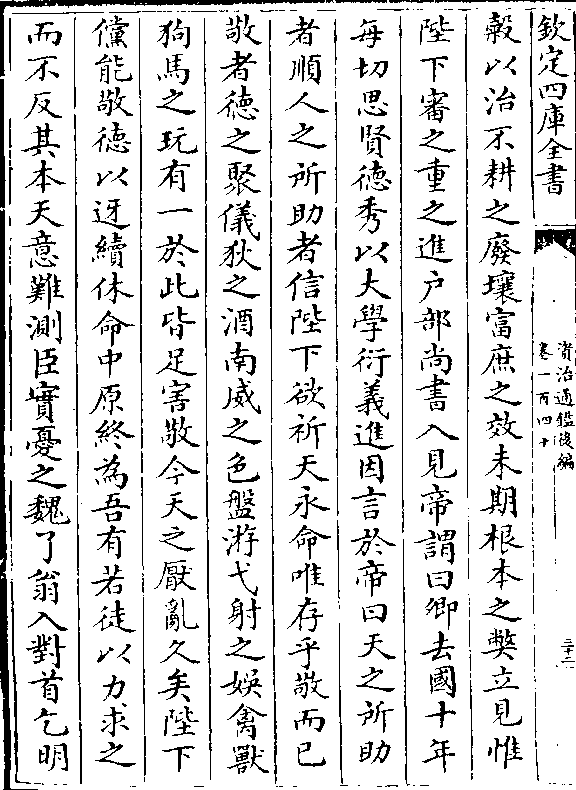 欽定四庫全書
資治通鑑後編
卷一百四十
三十二
穀以治不耕之廢壤富庶之效未期根本之弊立見惟
陛下審之重之進户部尚書入見帝謂曰卿去國十年
每切思賢德秀以大學衍義進因言於帝曰天之所助
者順人之所助者信陛下欲祈天永命唯存乎敬而已
敬者徳之聚儀狄之酒南威之色盤游弋射之娛禽獸
狗馬之玩有一於此皆足害敬今天之厭亂久矣陛下
儻能敬德以迓續休命中原終為吾有若徒以力求之
而不反其本天意難測臣實憂之魏了翁入對首乞明